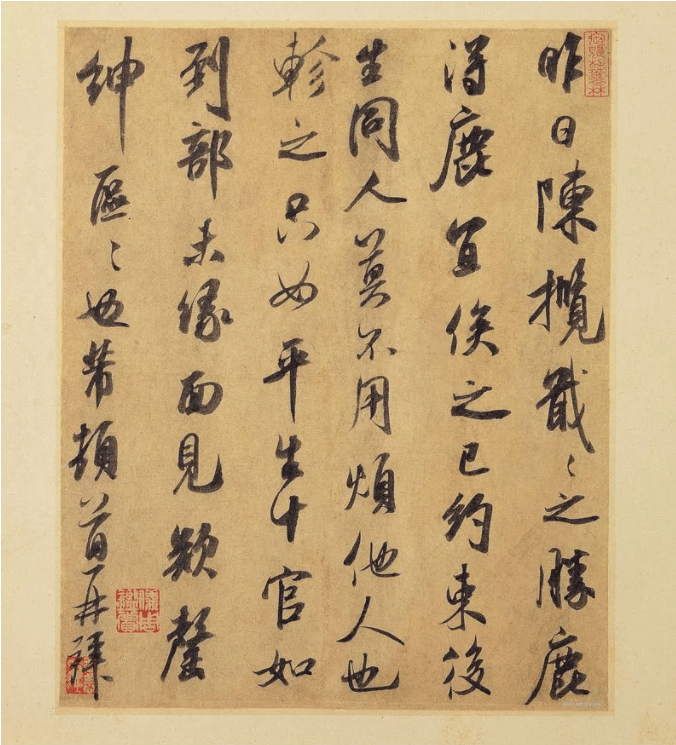 昨日陳攬戢〻之勝鹿
得鹿宜俟之已約束後
生同人莫不用煩他人也
軫之只如平生十官如
到部未緣面見欲罄
紳區〻也芾頓首再拜